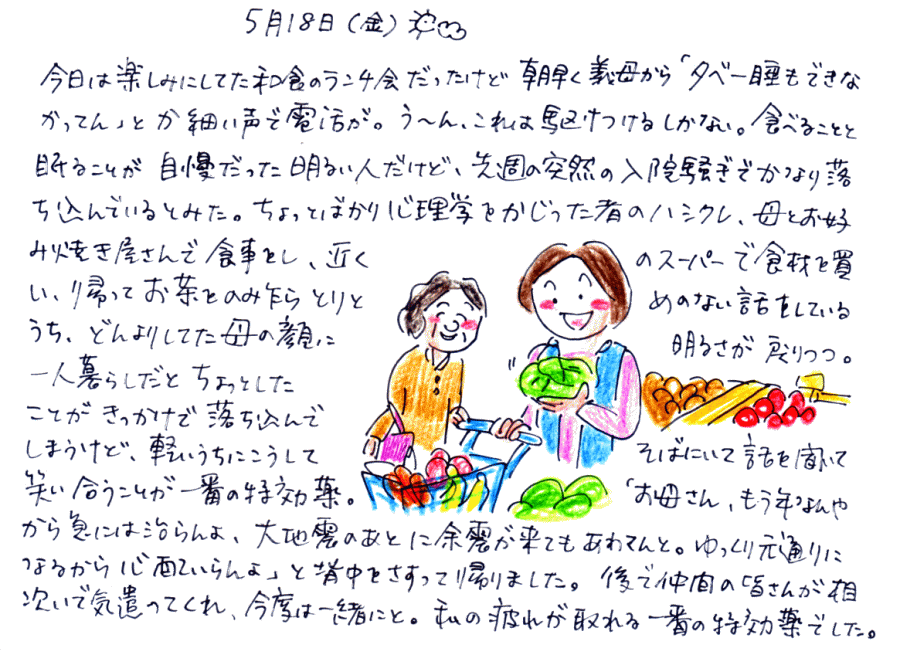 5月18日（金）
今日は楽しみにしてた和食のランチ会だったけど 朝早く義母から「夕べ一睡もできな
かってん」とか細い声で電話が。う〜ん、これは駆けつけるしかない。食べることと
眠ることが 自慢だった明るい人だけど、先週の突然の入院騒ぎでかなり落
ち込んでいるとみた。ちょっとばかり心理学をかじった者のハシクレ、母とお好
み焼き屋さんで食事をし、近く のスーパーで食材を買
い、帰ってお茶をのみ乍らとりと めのない話をしている
うち、どんよりしてた母の顔に 明るさが戻りつつ。
一人暮らしだとちょっとした
ことがきっかけで落ち込んで
しまうけど、軽いうちにこうして そばにいて話を聞いて
笑い合うことが一番の特効薬。 「お母さん、もう年なんや
から急には治らんよ、大地震のあとに余震が来てもあわてんと。ゆっくり元通りに
なるから心配いらんよ」と背中をさすって帰りました。 後で仲間の皆さんが相
次いで気遣ってくれ、今度は一緒にと。私の疲れが取れる一番の特効薬でした。